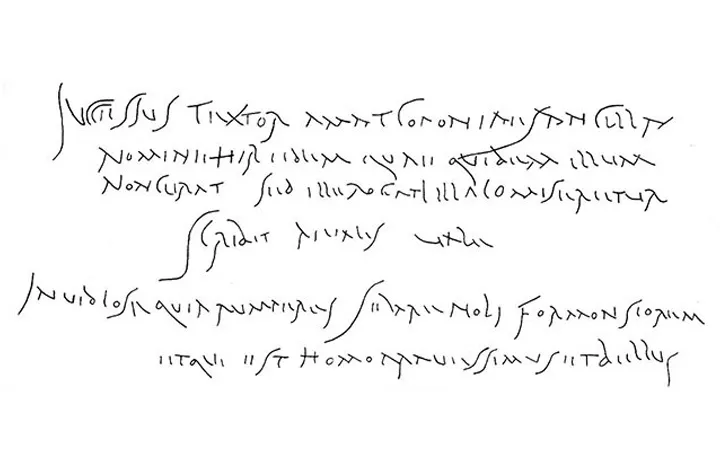 Successus textor amat coponiaes ancilla
nomine Hiredem quae quidem illum
non curat sed ille rogat illa comiseretur
scribit rivalis vale
Invidiose quia rumperis secare noli formonsiorem
et qui est homo pravessimus et bellus